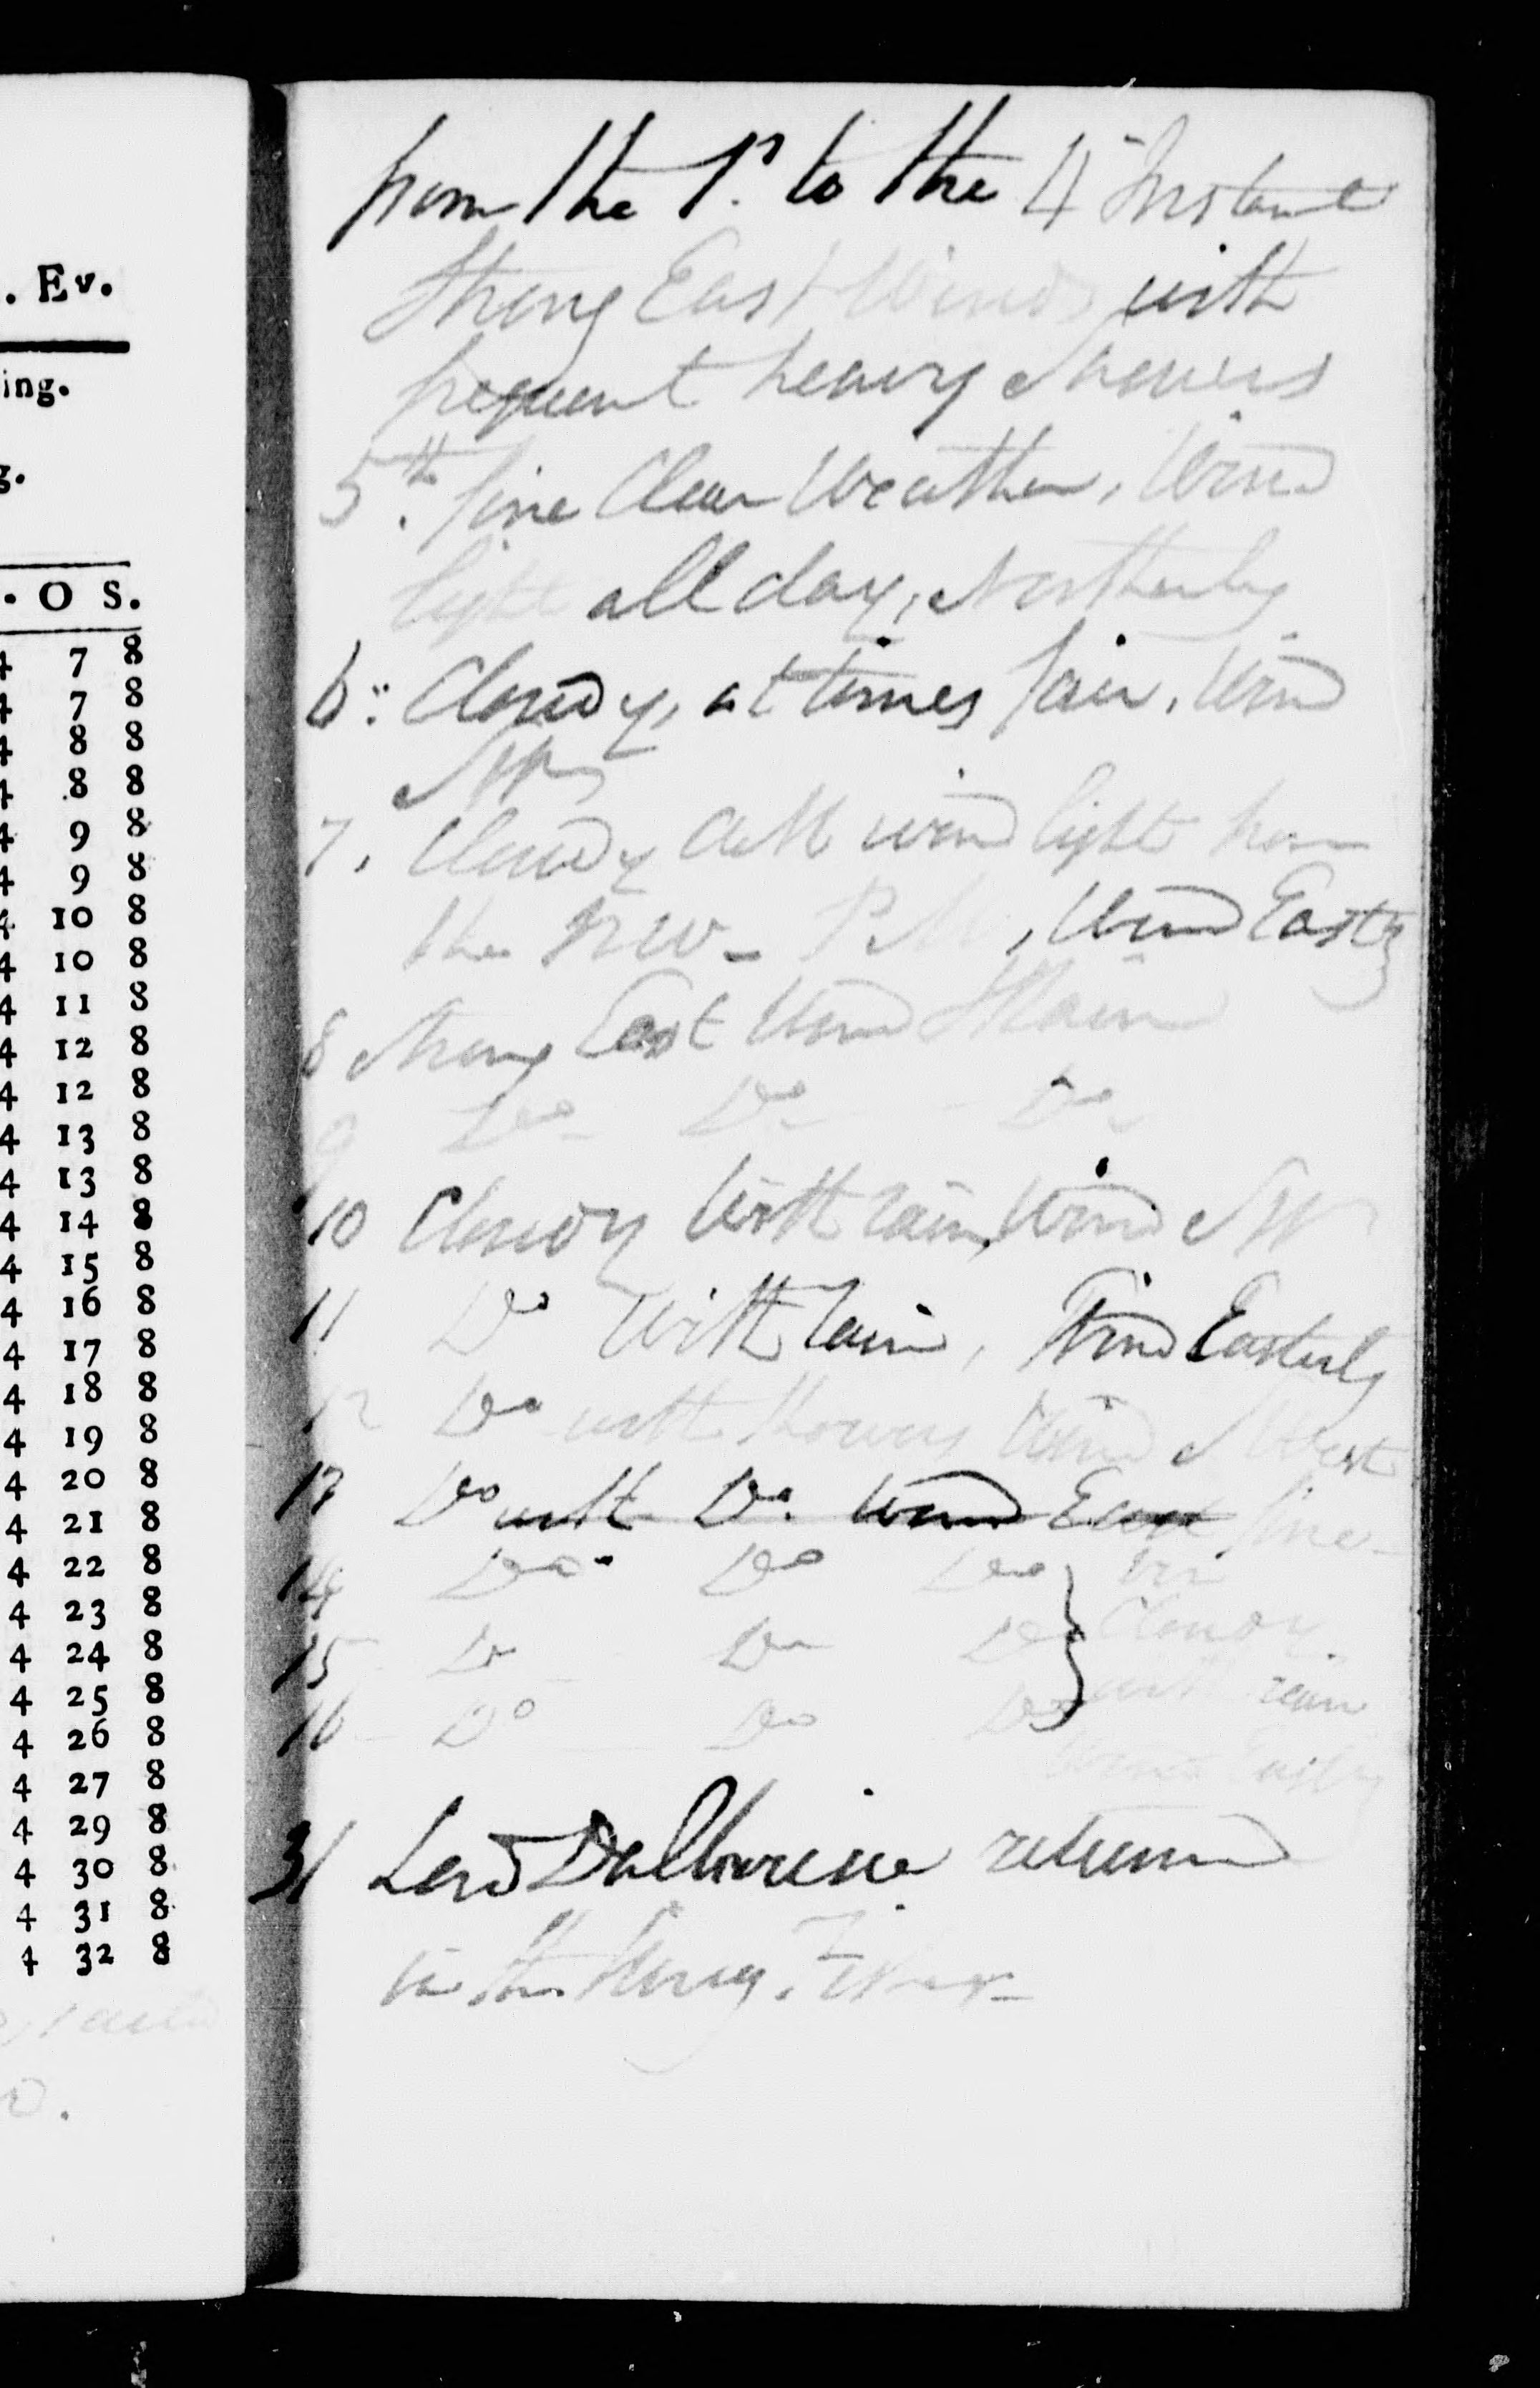 . Ev.
ing.
g.
. O S.
4 7 8
4 7 8
4 8 8
4 .8 8
4 9 8
4 9 8
4 10 8
4 10 8
4 11 8
4 12 8
4 12 8
4 13 8
4 13 8
4 14 8
4 15 8
4 16 8
4 17 8
4 18 8
4 19 8
4 20 8
4 21 8
4 22 8
4 23 8
4 24 8
4 25 8
4 26 8
4 27 8
4 29 8
4 30 8
4 31 8
4 32 8
from the 1st. to the 4 Instant
Strong East Winds with
frequent heavy Showers
5th. fine Clear Weather, Wind
light all day, Northerly
6.. Cloudy, at times fair, Wind
7. Cloudy AM wind light from
the NW - PM, Wind Eastly
8 Strong East Wind & Rain
9 Do Do Do
10 Cloudy With rain, Wind NW
11 Do With rain, Wind Easterly
12 Do with Showers Wind NWest
13 Do with Do. Wind East fine
14 Do Do Do
15 Do Do Do } Cloudy
16 Do Do Do with rain
Wind Eastly
31 Lord Dalhousie returned
in the